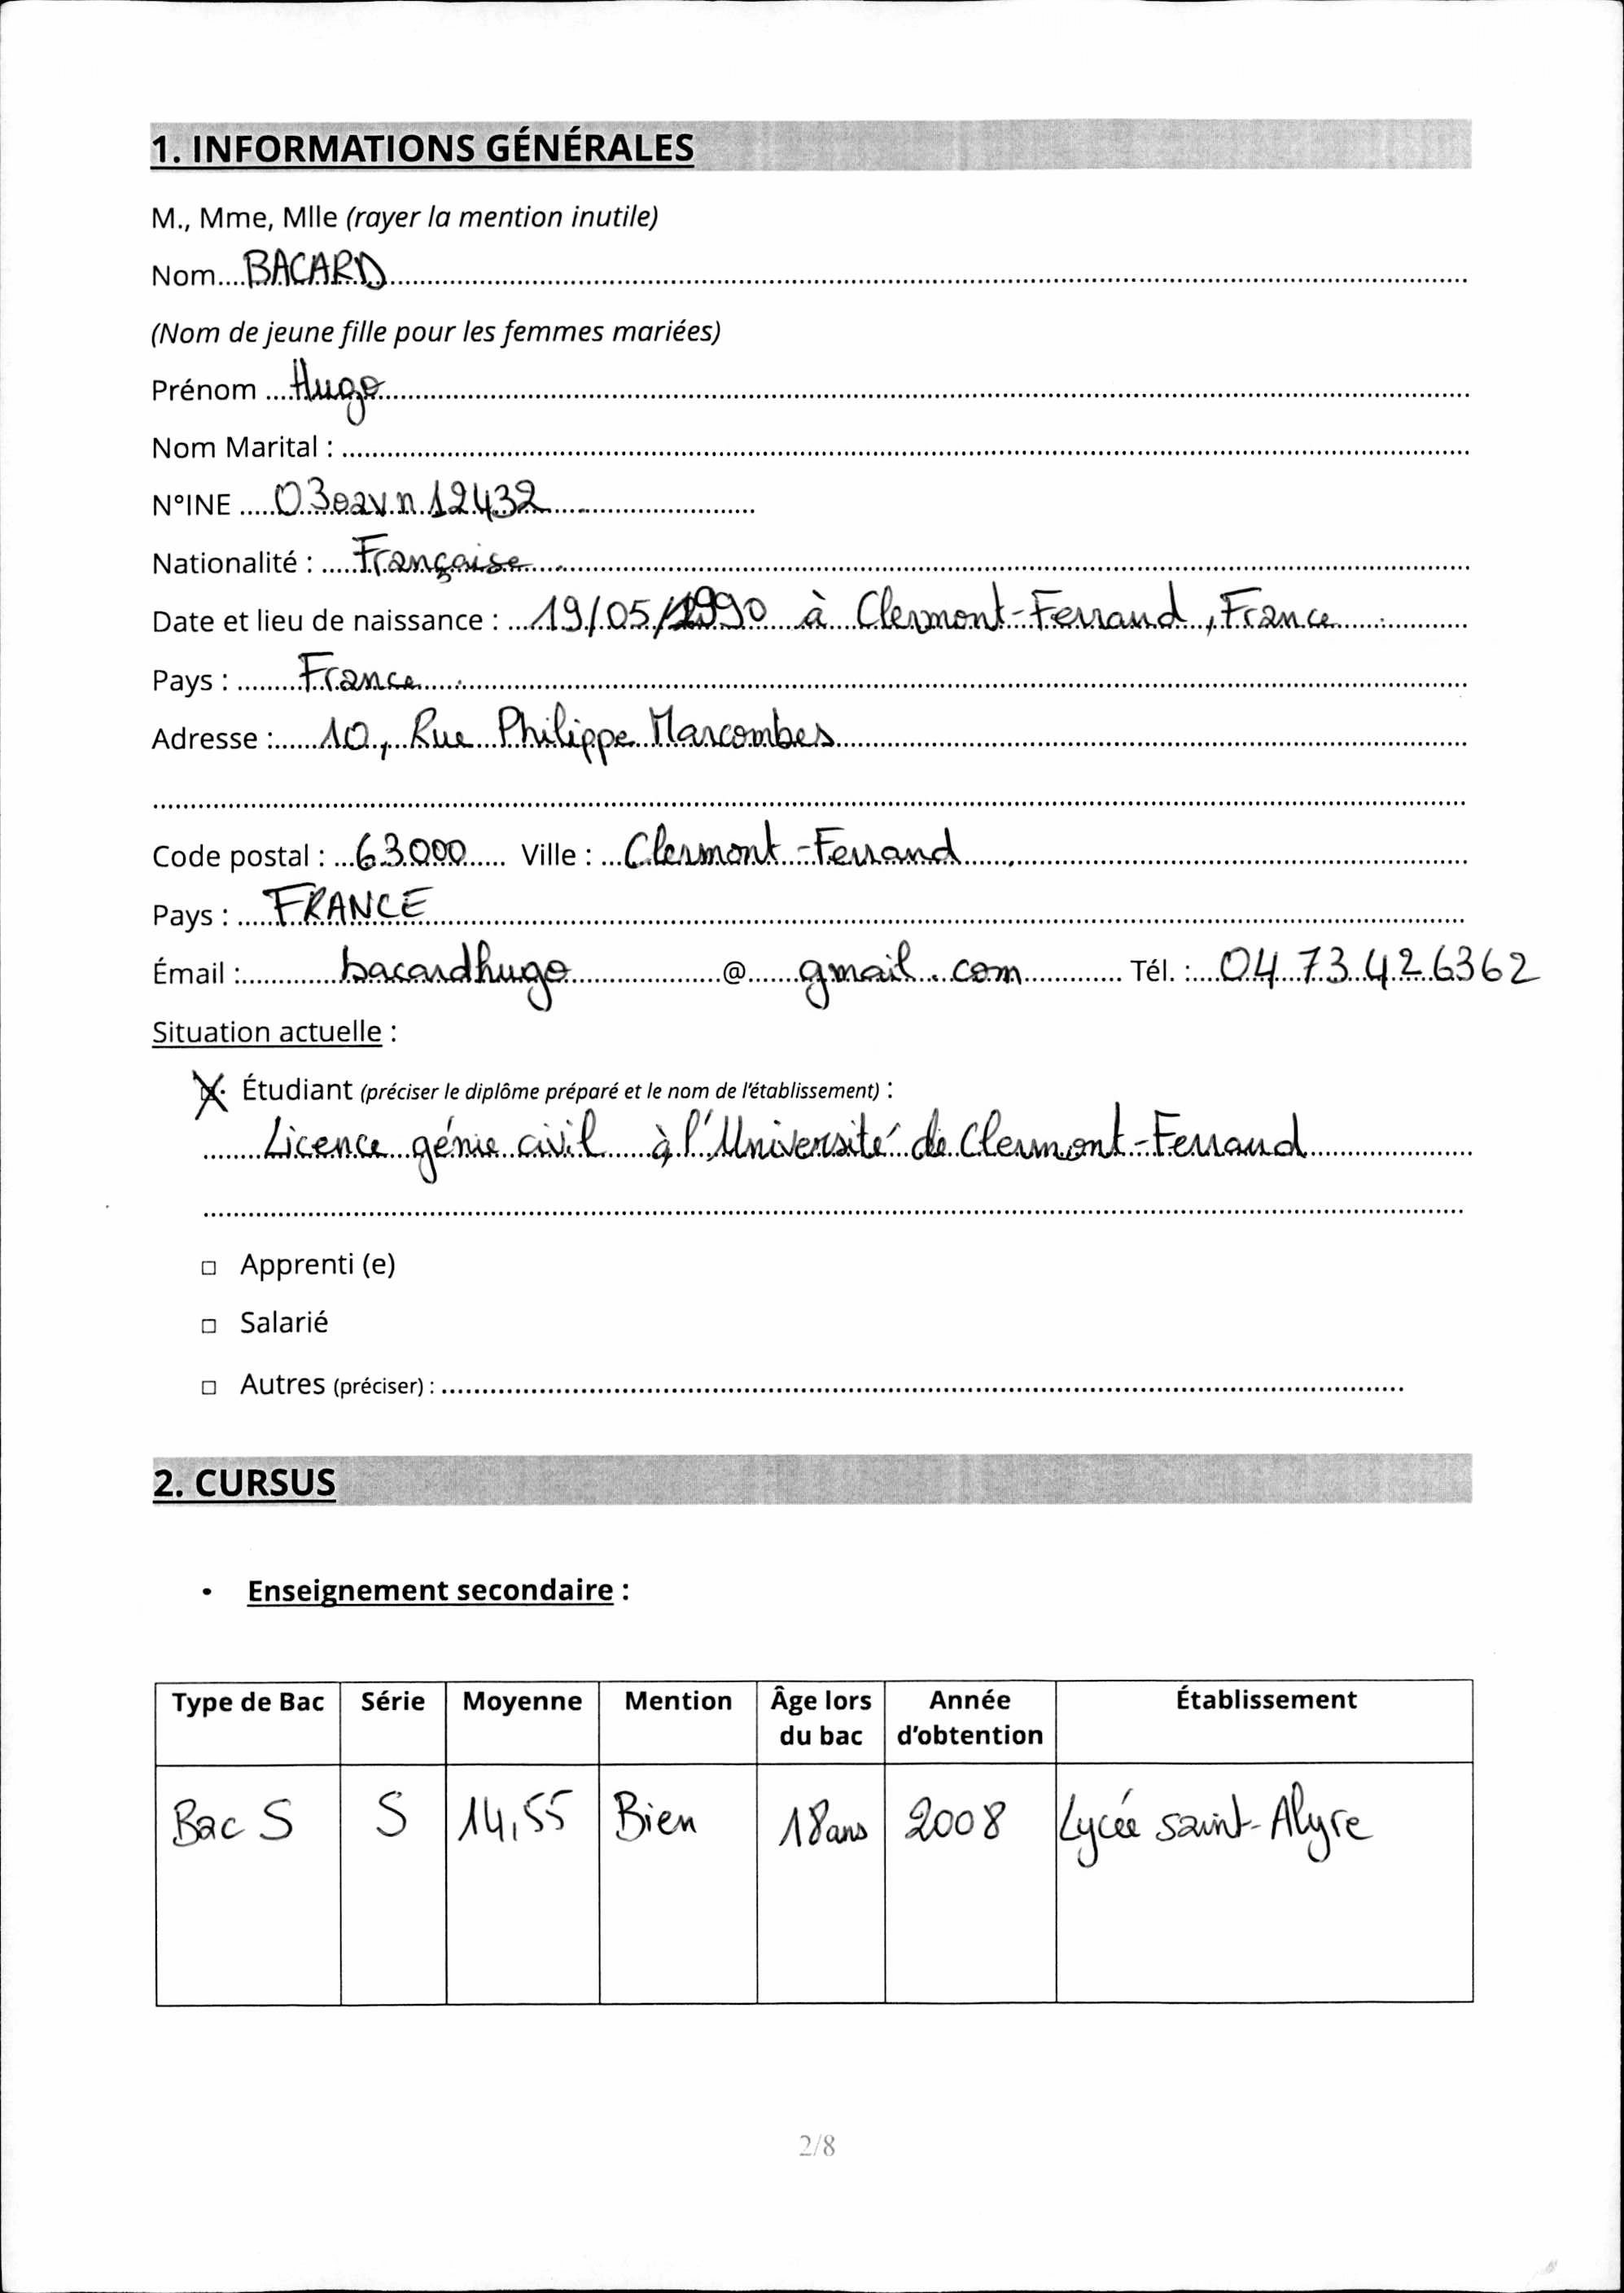 1. INFORMATIONS GÉNÉRALES
M., Mme, Mlle (rayer la mention inutile)
Nom....BACARD
(Nom de jeune fille pour les femmes mariées)
Prénom ....Hugo
Nom Marital :
N°INE .....03eavn12432
Nationalité : .....Française
Date et lieu de naissance : ...19/05/1990 à Clermont-Ferrand, France
Pays : ........France
Adresse :......10, Rue Philippe Marcombes
Code postal : ...63000...... Ville : ...Clermont-Ferrand
Pays : .....FRANCE
Émail :............bacardhugo....................@......gmail.com............. Tél. :....04 73 42 6362
Situation actuelle :
Étudiant (préciser le diplôme préparé et le nom de l'établissement) :
Licence génie civil à l'Université de Clermont-Ferrand
□ Apprenti (e)
□ Salarié
□ Autres (préciser) :
2. CURSUS
• Enseignement secondaire :
Type de Bac Série Moyenne Mention Âge lors du bac Année d'obtention Établissement
Bac S S 14,55 Bien 18 ans 2008 Lycée saint-Alyre
2/8